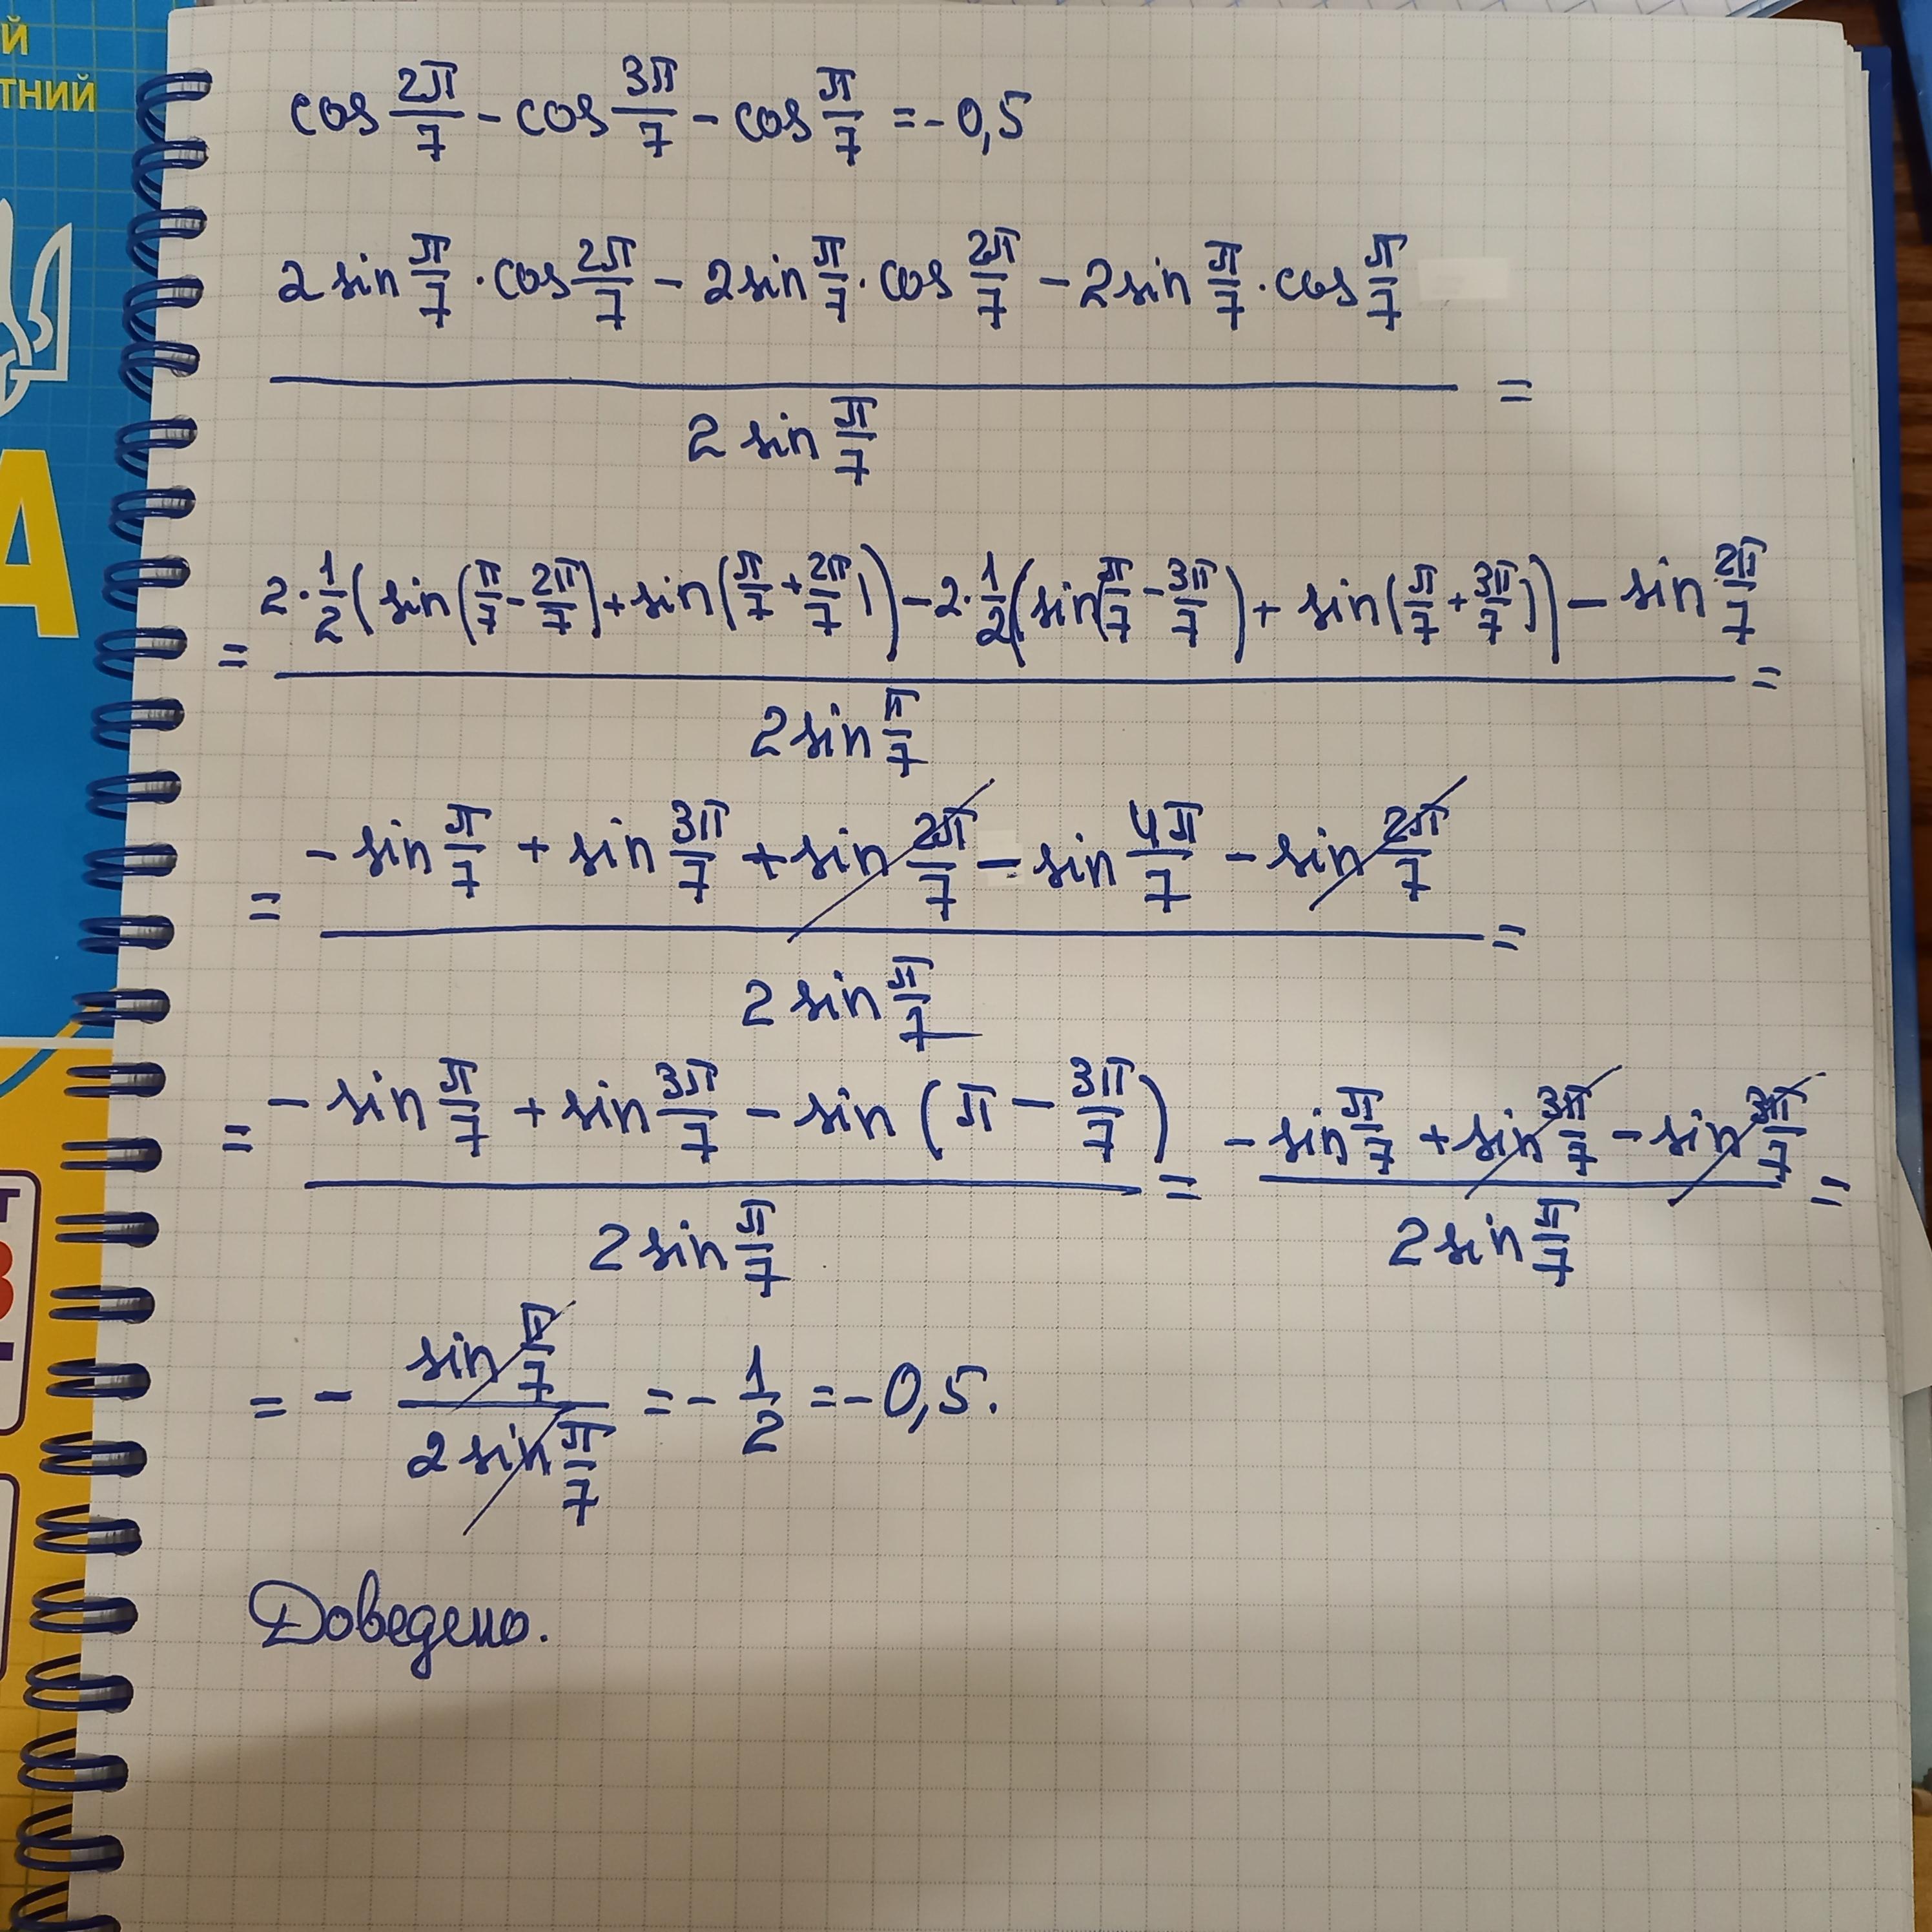 й
тний
А
т
cos 2π/7 - cos 3π/7 - cos π/7 = -0,5
2 sin π/7 · cos 2π/7 - 2 sin π/7 · cos 2π/7 - 2 sin π/7 · cos π/7
=
2 sin π/7
2 · 1/2 (sin(π/7 - 2π/7) + sin(π/7 + 2π/7)) - 2 · 1/2 (sin(π/7 - 3π/7) + sin(π/7 + 3π/7)) - sin 2π/7
= =
2 sin π/7
- sin π/7 + sin 3π/7 + sin 2π/7 - sin 4π/7 - sin 2π/7
= =
2 sin π/7
- sin π/7 + sin 3π/7 - sin (π - 3π/7) - sin π/7 + sin 3π/7 - sin 3π/7
= = =
2 sin π/7 2 sin π/7
= - sin π/7 / 2 sin π/7 = - 1/2 = -0,5.
Доведено.